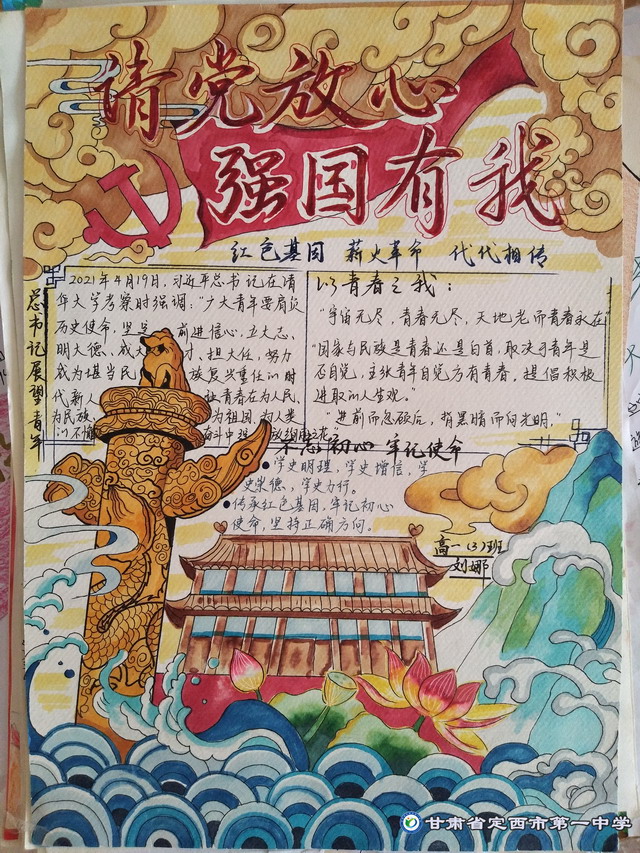 请党放心
强国有我
红色基因 薪火革命 代代相传
总书记展望青年
2021年4月19日,习近平总书记在清
华大学考察时强调:“广大青年要肩负
历史使命,坚定 前进信心,立大志、
明大德、成大 才、担大任,努力
成为堪当民 族复兴重任的时
代新人 让青春在为人民、
为民族 为祖国、为人类
的不懈 奋斗中绽放绚丽之花
以青春之我:
“宇宙无尽,青春无尽,天地老而青春永在”
“国家与民族是青春还是白首,取决于青年是
否自觉,主张青年自觉方有青春。提倡积极
进取的人生观。”
“进前而忽顾后,背黑暗而向光明,”
不忘初心 牢记使命
学史明理,学史增信,学
史崇德、学史力行。
传承红色基因,牢记初心
使命,坚持正确方向。
高一(3)班
刘娜
甘肃省定西市第一中学